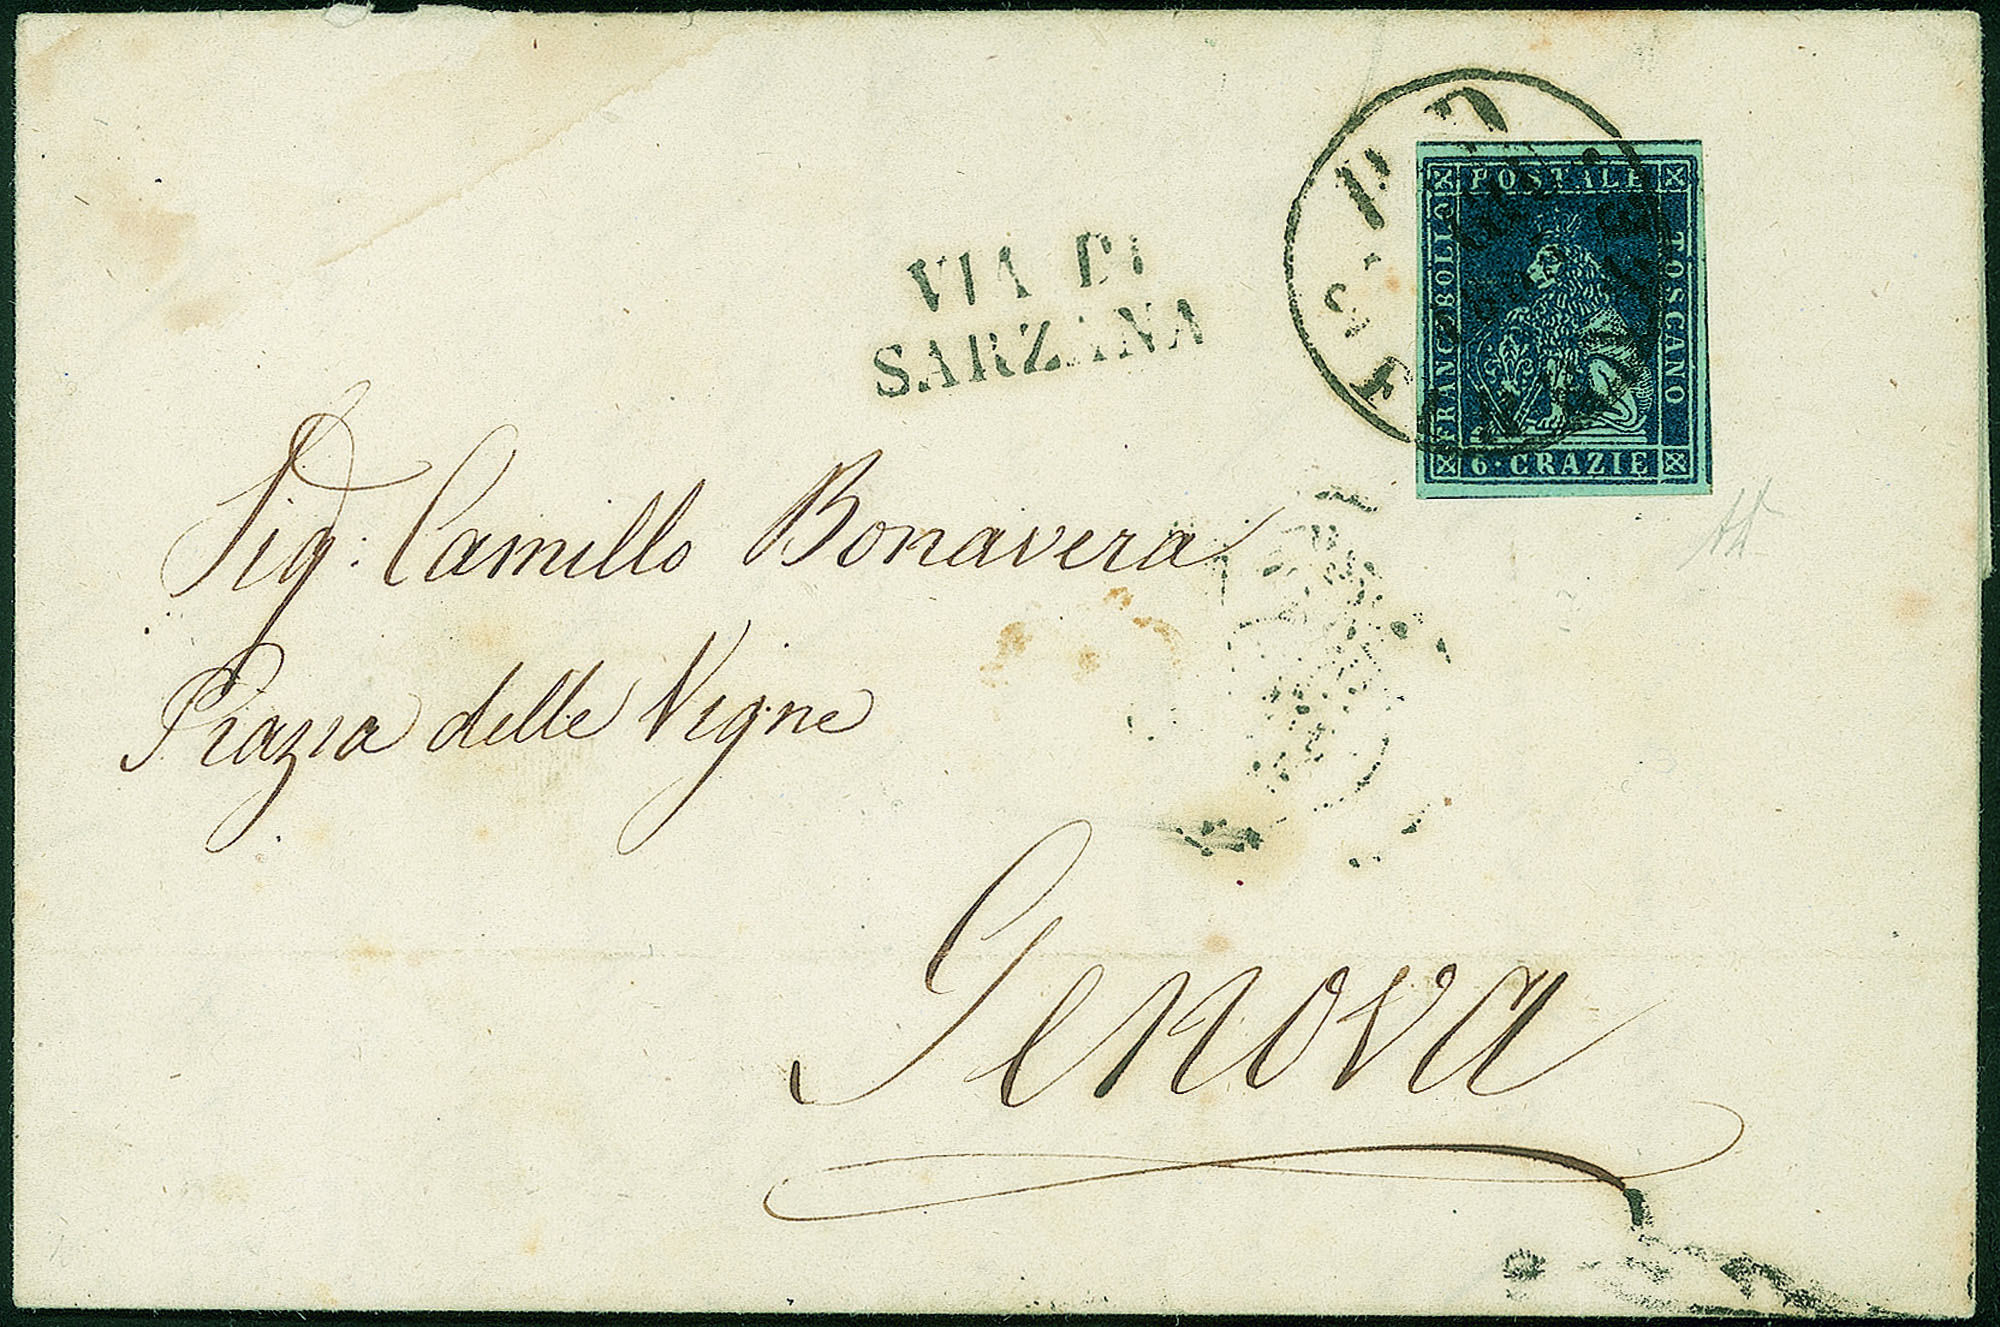 P D
VIA DI
SARZANA
FRANCOBOLLO
POSTALE
TOSCANO
6·CRAZIE
Sig: Camillo Bonavera
Piazza delle Vigne
Genova